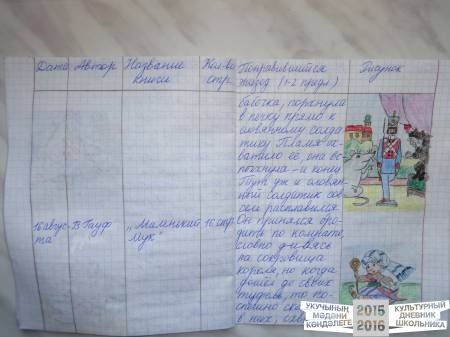 Дата Автор Название книги Кол-во стр. Понравившийся эпизод (1-2 предл.) Рисунок
бабочка, порхнула
в печку прямо к
оловянному солда-
тику Пламя ох-
ватило её, она вс-
пыхнула - и конец
Тут уж и оловян-
ный солдатик сов-
сем расплавился.
16 авгус-
та
В Гауф
"Маленький
Мук"
16 стр.
Он принялся бро-
дить по комнате,
словно дивясь
на сокровища
короля, но когда
дошёл до своих
туфель, то по-
спешно
в них,
УКУЧЫНЫҢ
МӘДӘНИ
КӨНДӘЛЕГЕ
2015
2016
КУЛЬТУРНЫЙ
ДНЕВНИК
ШКОЛЬНИКА